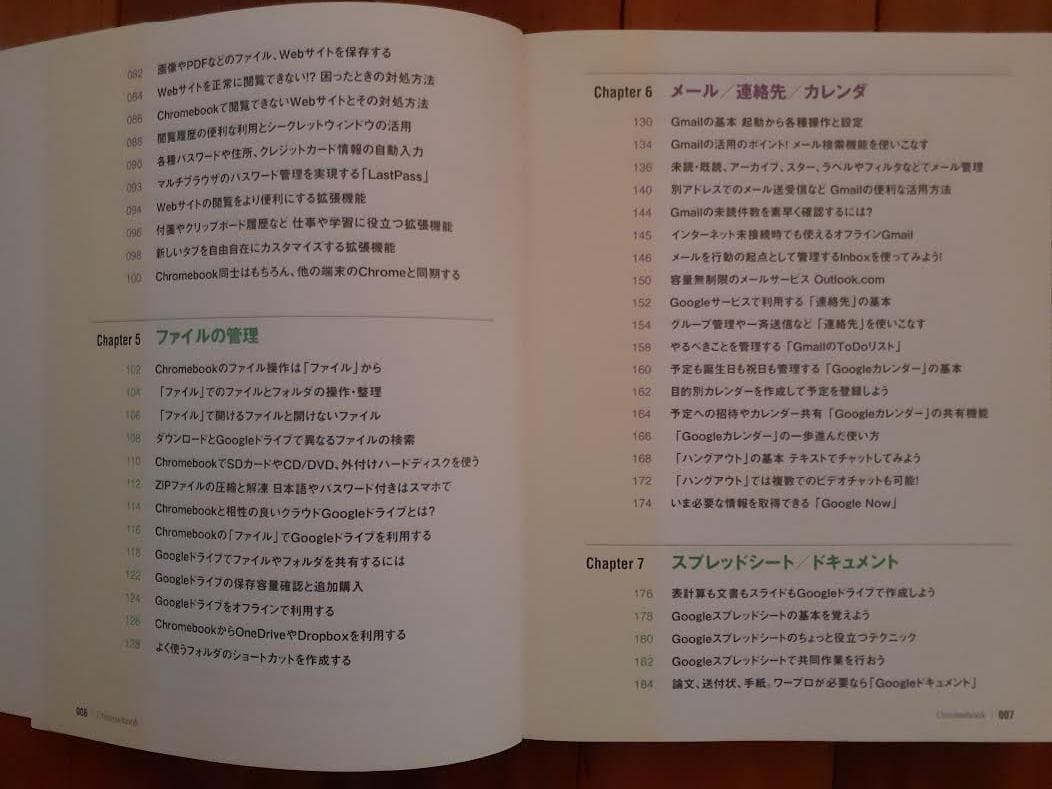 082 画像やPDFなどのファイル、Webサイトを保存する
084 Webサイトを正常に閲覧できない!? 困ったときの対処方法
086 Chromebookで閲覧できないWebサイトとその対処方法
088 閲覧履歴の便利な利用とシークレットウィンドウの活用
090 各種パスワードや住所、クレジットカード情報の自動入力
093 マルチブラウザのパスワード管理を実現する「LastPass」
094 Webサイトの閲覧をより便利にする拡張機能
096 付箋やクリップボード履歴など 仕事や学習に役立つ拡張機能
098 新しいタブを自由自在にカスタマイズする拡張機能
100 Chromebook同士はもちろん、他の端末のChromeと同期する
Chapter 5 ファイルの管理
102 Chromebookのファイル操作は「ファイル」から
104 「ファイル」でのファイルとフォルダの操作・整理
106 「ファイル」で開けるファイルと開けないファイル
108 ダウンロードとGoogleドライブで異なるファイルの検索
110 ChromebookでSDカードやCD/DVD、外付けハードディスクを使う
112 ZIPファイルの圧縮と解凍 日本語やパスワード付きはスマホで
114 Chromebookと相性の良いクラウドGoogleドライブとは?
116 Chromebookの「ファイル」でGoogleドライブを利用する
118 Googleドライブでファイルやフォルダを共有するには
122 Googleドライブの保存容量確認と追加購入
124 Googleドライブをオフラインで利用する
126 ChromebookからOneDriveやDropboxを利用する
128 よく使うフォルダのショートカットを作成する
006 | Chromebook
Chapter 6 メール/連絡先/カレンダ
130 Gmailの基本 起動から各種操作と設定
134 Gmailの活用のポイント! メール検索機能を使いこなす
136 未読・既読、アーカイブ、スター、ラベルやフィルタなどでメール管理
140 別アドレスでのメール送受信など Gmailの便利な活用方法
144 Gmailの未読件数を素早く確認するには?
145 インターネット未接続時でも使えるオフラインGmail
146 メールを行動の起点として管理するInboxを使ってみよう!
150 容量無制限のメールサービス Outlook.com
152 Googleサービスで利用する「連絡先」の基本
154 グループ管理や一斉送信など「連絡先」を使いこなす
158 やるべきことを管理する「GmailのToDoリスト」
160 予定も誕生日も祝日も管理する「Googleカレンダー」の基本
162 目的別カレンダーを作成して予定を登録しよう
164 予定への招待やカレンダー共有「Googleカレンダー」の共有機能
166 「Googleカレンダー」の一歩進んだ使い方
168 「ハングアウト」の基本 テキストでチャットしてみよう
172 「ハングアウト」では複数でのビデオチャットも可能!
174 いま必要な情報を取得できる「Google Now」
Chapter 7 スプレッドシート/ドキュメント
176 表計算も文書もスライドもGoogleドライブで作成しよう
178 Googleスプレッドシートの基本を覚えよう
180 Googleスプレッドシートのちょっと役立つテクニック
182 Googleスプレッドシートで共同作業を行おう
184 論文、送付状、手紙。ワープロが必要なら「Googleドキュメント」
Chromebook | 007